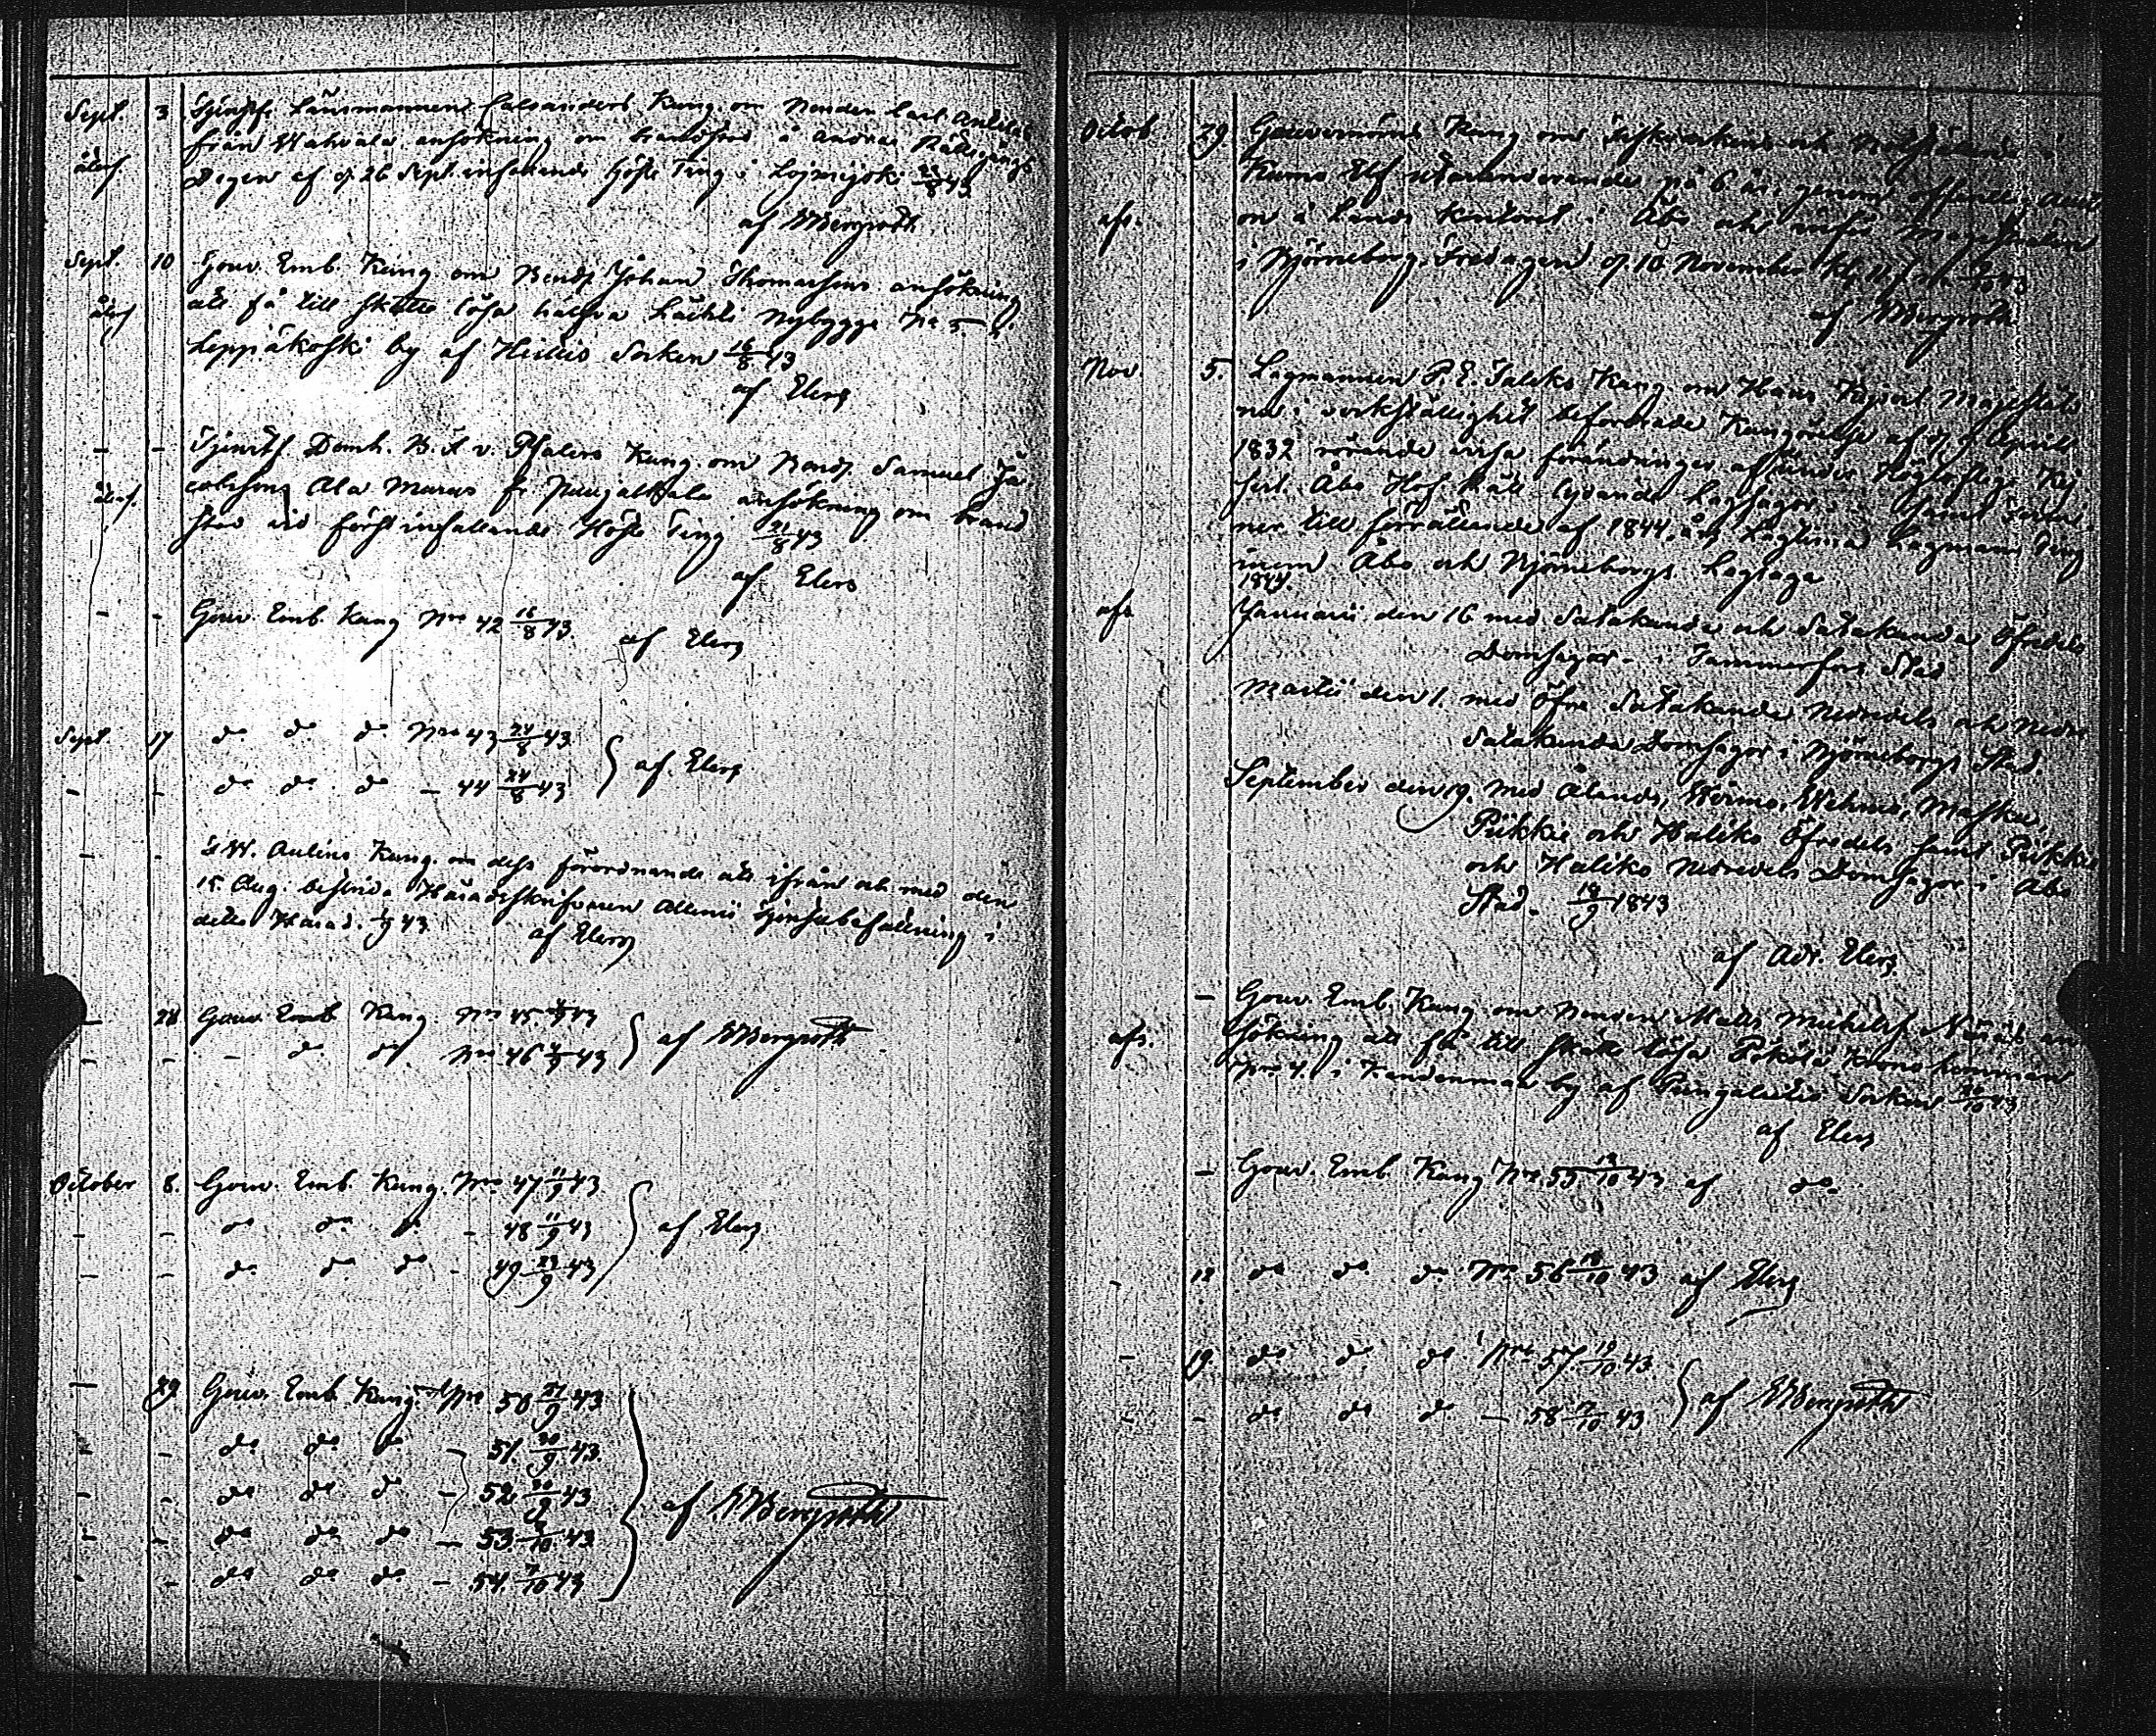 Sept. 3. Länsmannen Calsanders Kung. om Bonden Carl Anttilas
från Wahvala ansökning om brandstod å andra Rättegångs
åters. Dagen af d. 26 Sept. infallande Höste Ting i Loimijoki 43
af Bergroth
Sept. 10 Gouv. Emb. Kung. om Bonds. Johan Thomassons ansökning
åters att få till skatte lösa halfva Lächti Nybygge No 5 i
Leppäkoski by af Hvittis Socken 16/8 43
af Elers
- - Domh. B. A. v. Pfalers Kung. om Bonds. Samuel Ja-
cobsson Ala Maras fr. ansökning om brand
åters. stod vid först infallande Höste Ting 21/8 43
af Elers
- - Gouv. Emb. Kung Nro 42 16/8 43.
af Elers
Sept 17 do do do Nro 43 24/8 43
- - do do do — 44 24/8 43 } af Elers
- - W. Aulins Kung. om dess förordnande att ifrån och med den
15. Aug. bestrida Häradsskrifvaren Allenii tjenstebefattning i
detta Härad. 43
af Elers
- 24 Gouv. Emb. Kung. No 45. 43
- - - do do Nro 46 43 } af Bergroth
October 8. Gouv. Emb. Kung. Nro 47 11/9 43.
- - do do do - 48 11/9 43 } af Elers
- - do do do - 49 23/9 43
— 29 Gouv. Emb. Kung. Nro 50 27/9 43
- - do do do - 51. 30/9 43.
- - do do do - 52 30/9 43 } af Bergroth
- - do do do — 53. 43
- - do do do - 54. 7/10 43
Octob 29. Gouverneurens Kung om fiskverkens och
Kumo Elf utarrenderande på 6 år, genom offentlig Auct
afs. on å Lands Kontoret i Åbo och inför Magistraten
i Björneborg, Fredagen d. 10 November Kl. 11 f. m. 43
af Bergroth
Nov 5. Lagmannen P. E. Kung. om Hans Kejserl. Majestäts
nu i verkställighet befordrade Kungörelse af d. 9 April
1832 rörande vissa förändringar af under Högloflige Kej
serl. Åbo Hof Rätt lydande Lagsagor; samt
ner till förrättande af 1844 års Lagtima Lagmans Ting
inom Åbo och Björneborgs Lagsaga
1844.
afs Januarii den 16 med Satakunda och Satakunda Öfredels
Domsagor i Tammerfors Stad
Martii den 1. med Öfre Satakunda Nedredels och Nedre
Satakunda Domsagor i Björneborgs Stad.
September den 19. med Ålands, Wirmo, Wehmo, Masku,
Piikkie och Haliko Öfredels samt Piikkie
och Haliko Nedredels Domsagor i Åbo
Stad. 19/9 1843
af Adr. Elers
— Gouv. Emb. Kung om Bonden Matts Michelss. an
afs. sökning att få till skatte lösa Krono hemman
Nro 4. i by af Pungalaitio Socken 43
af Elers
— Gouv. Emb Kung Nro 55 12/10 43 af do
- 12 do do do Nro 56 43 af Elers
- 19. do do do Nro 57. 43
- - do do do — 58 43 } af Bergroth